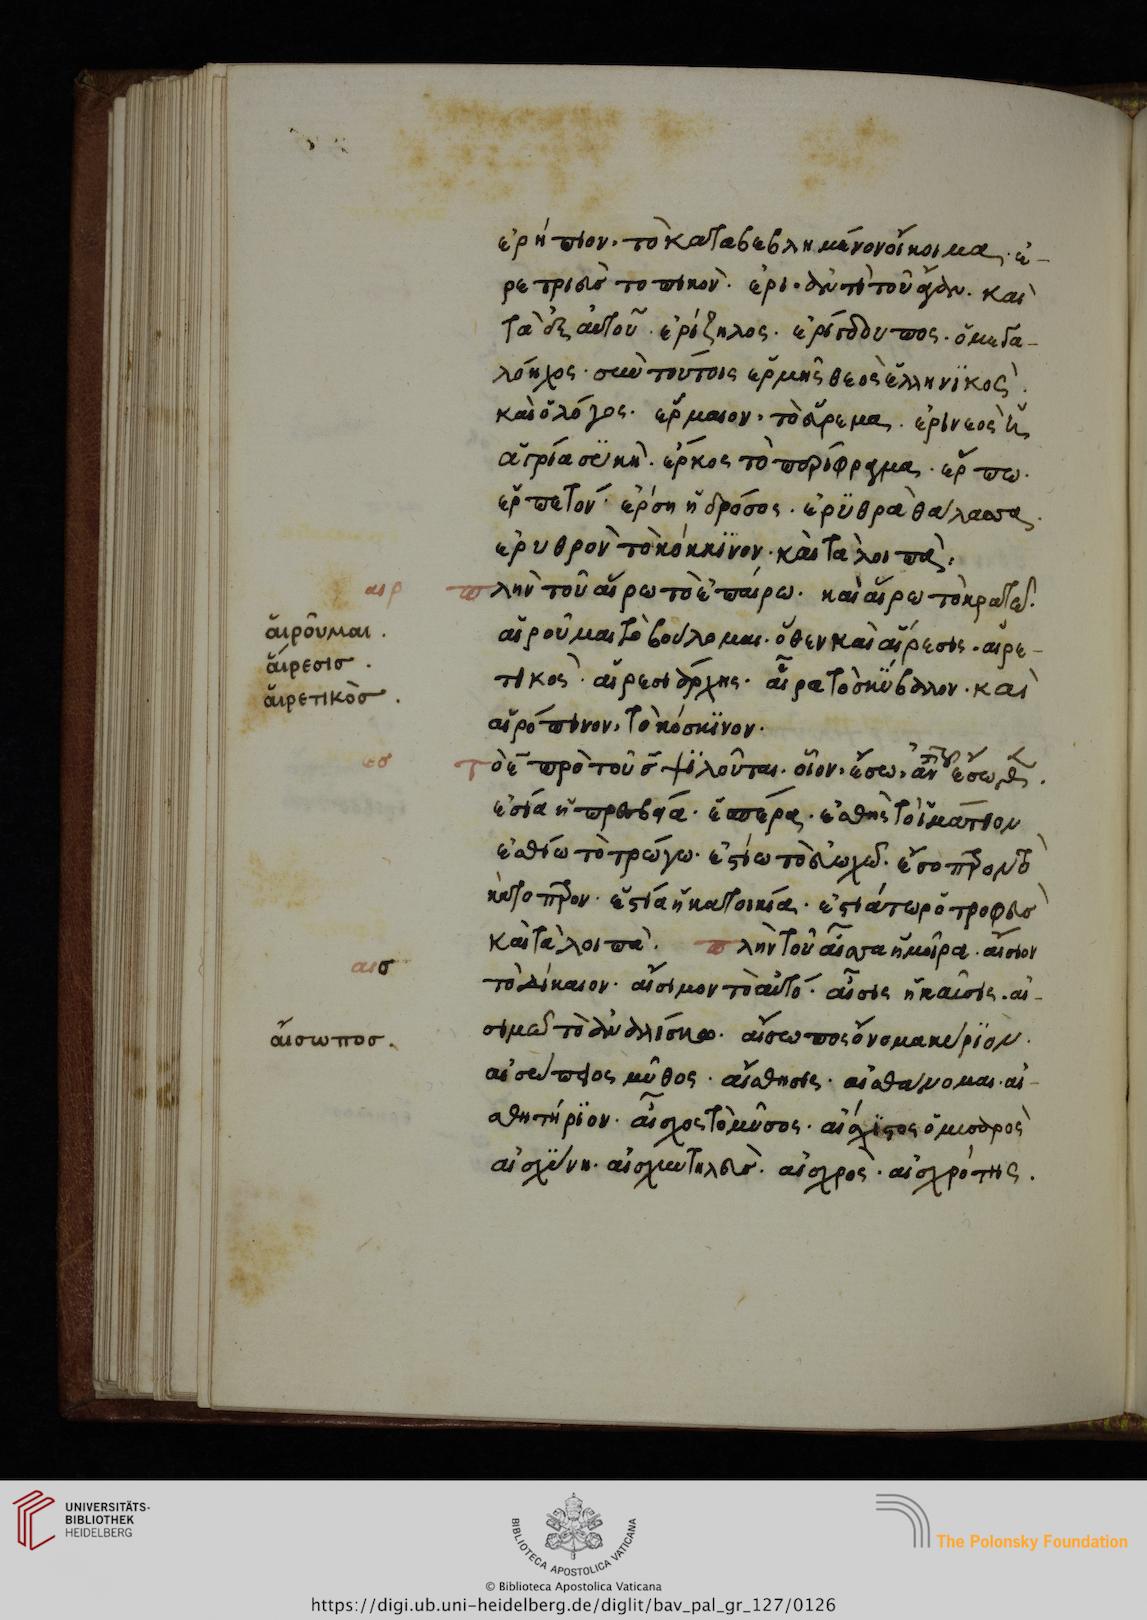 ἐρήπιον. τὸ καταβεβλημένον οἴκημα. ἐ-
ρετριεὺς τοπικὸν. ἐρι. ἀντὶ τοῦ ἄγαν. καὶ
τὰ ἐξ αὐτοῦ. ἐρίζηλος. ἐρίγδουπος. ὁ μεγα-
λόηχος. σὺν τούτοις ἑρμῆς θεὸς ἑλληνϊκὸς.
καὶ ὁ λόγος. ἕρμαιον. τὸ εὕρεμα. ἐρινεὸς ἡ
ἀγρία συκῆ. ἕρκος τὸ περίφραγμα. ἕρπω.
ἑρπετόν. ἕρση ἡ δρόσος. ἐρϋθρὰ θάλασσα.
ἐρυθρὸν τὸ κόκκϊνον. καὶ τὰ λοιπὰ.
αιρ πλὴν τοῦ αἴρω τὸ ἐπαίρω. καὶ αἱρῶ τὸ κρατῶ.
αἱροῦμαι. αἱροῦμαι τὸ βούλομαι. ὅθεν καὶ αἵρεσις. αἱρε-
αἵρεσισ. τικὸς. αἱρεσιάρχης. αἶρα τὸ σκύβαλον. καὶ
αἱρετικὸσ. αἱρόπινον. τὸ κόσκϊνον.
εσ Τὸ ε πρὸ τοῦ σ ψϊλοῦται. οἷον. ἔσω. ἀντὶ τοῦ ἔσωθεν.
ἑσία ἡ πρεσβεία. ἑσπέρα. ἐσθὴς τὸ ἱμάτιον
ἐσθίω τὸ τρώγω. ἑστιῶ τὸ εὐωχῶ. ἔσοπτρον τὸ
κάτοπτρον. ἑστία ἡ κατοικία. ἑστιάτωρ ὁ τροφεὺσ
καὶ τὰ λοιπὰ. πλὴν τοῦ αἶσα ἡ μοῖρα. αἴσιον
αισ τὸ δίκαιον. αἴσιμον τὸ αὐτό. αἶσις ἡ καῦσις. αἰ-
αἴσωποσ. σιμῶ τὸ ἀναλίσκω. αἴσωπος ὄνομα κύρϊον.
αἰσώπειος μῦθος. αἴσθησις. αἰσθάνομαι. αἰ-
σθητήρϊον. αἶσχος τὸ μῦσος. αἴσχϊστος ὁ μιαρὸς
αἰσχύνη. αἰσχυντηλὸς. αἰσχρὸς. αἰσχρότης.
UNIVERSITÄTS-
BIBLIOTHEK
HEIDELBERG
BIBLIOTECA APOSTOLICA VATICANA
The Polonsky Foundation
© Biblioteca Apostolica Vaticana
https://digi.ub.uni-heidelberg.de/diglit/bav_pal_gr_127/0126